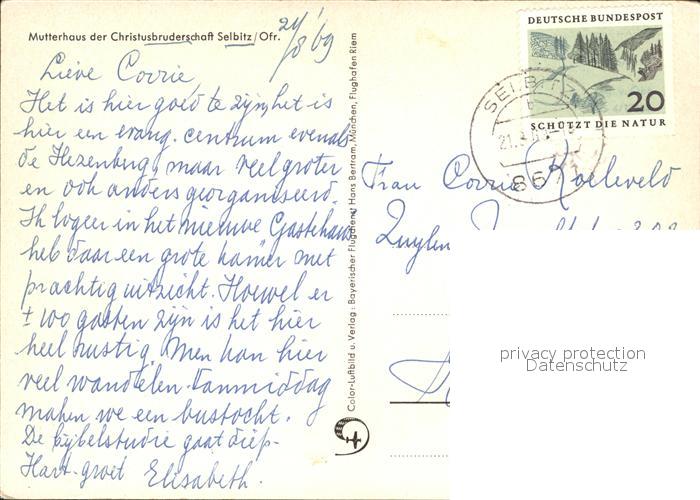 Mutterhaus der Christusbruderschaft Selbitz/Ofr.
21/8 '69
Lieve Corrie
Het is hier goed te zijn, het is
hier een evang. centrum evenals
de Hezenberg, maar veel groter
en ook anders georganiseerd.
Ik logeer in het nieuwe Gästehaus
heb daar een grote kamer met
prachtig uitzicht. Hoewel er
± 100 gasten zijn is het hier
heel rustig. Men kan hier
veel wandelen. Vanmiddag
maken we een bustocht.
De bijbelstudie gaat diep.
Hart. groet Elisabeth.
Color-Luftbild u. Verlag: Bayerischer Flugdienst Hans Bertram, München, Flughafen Riem
DEUTSCHE BUNDESPOST
20
SCHÜTZT DIE NATUR
SELBITZ
867
Frau Corrie Roeleveld
Zuylen
privacy protection
Datenschutz